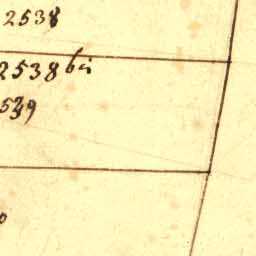 2538
2538 bis
2539